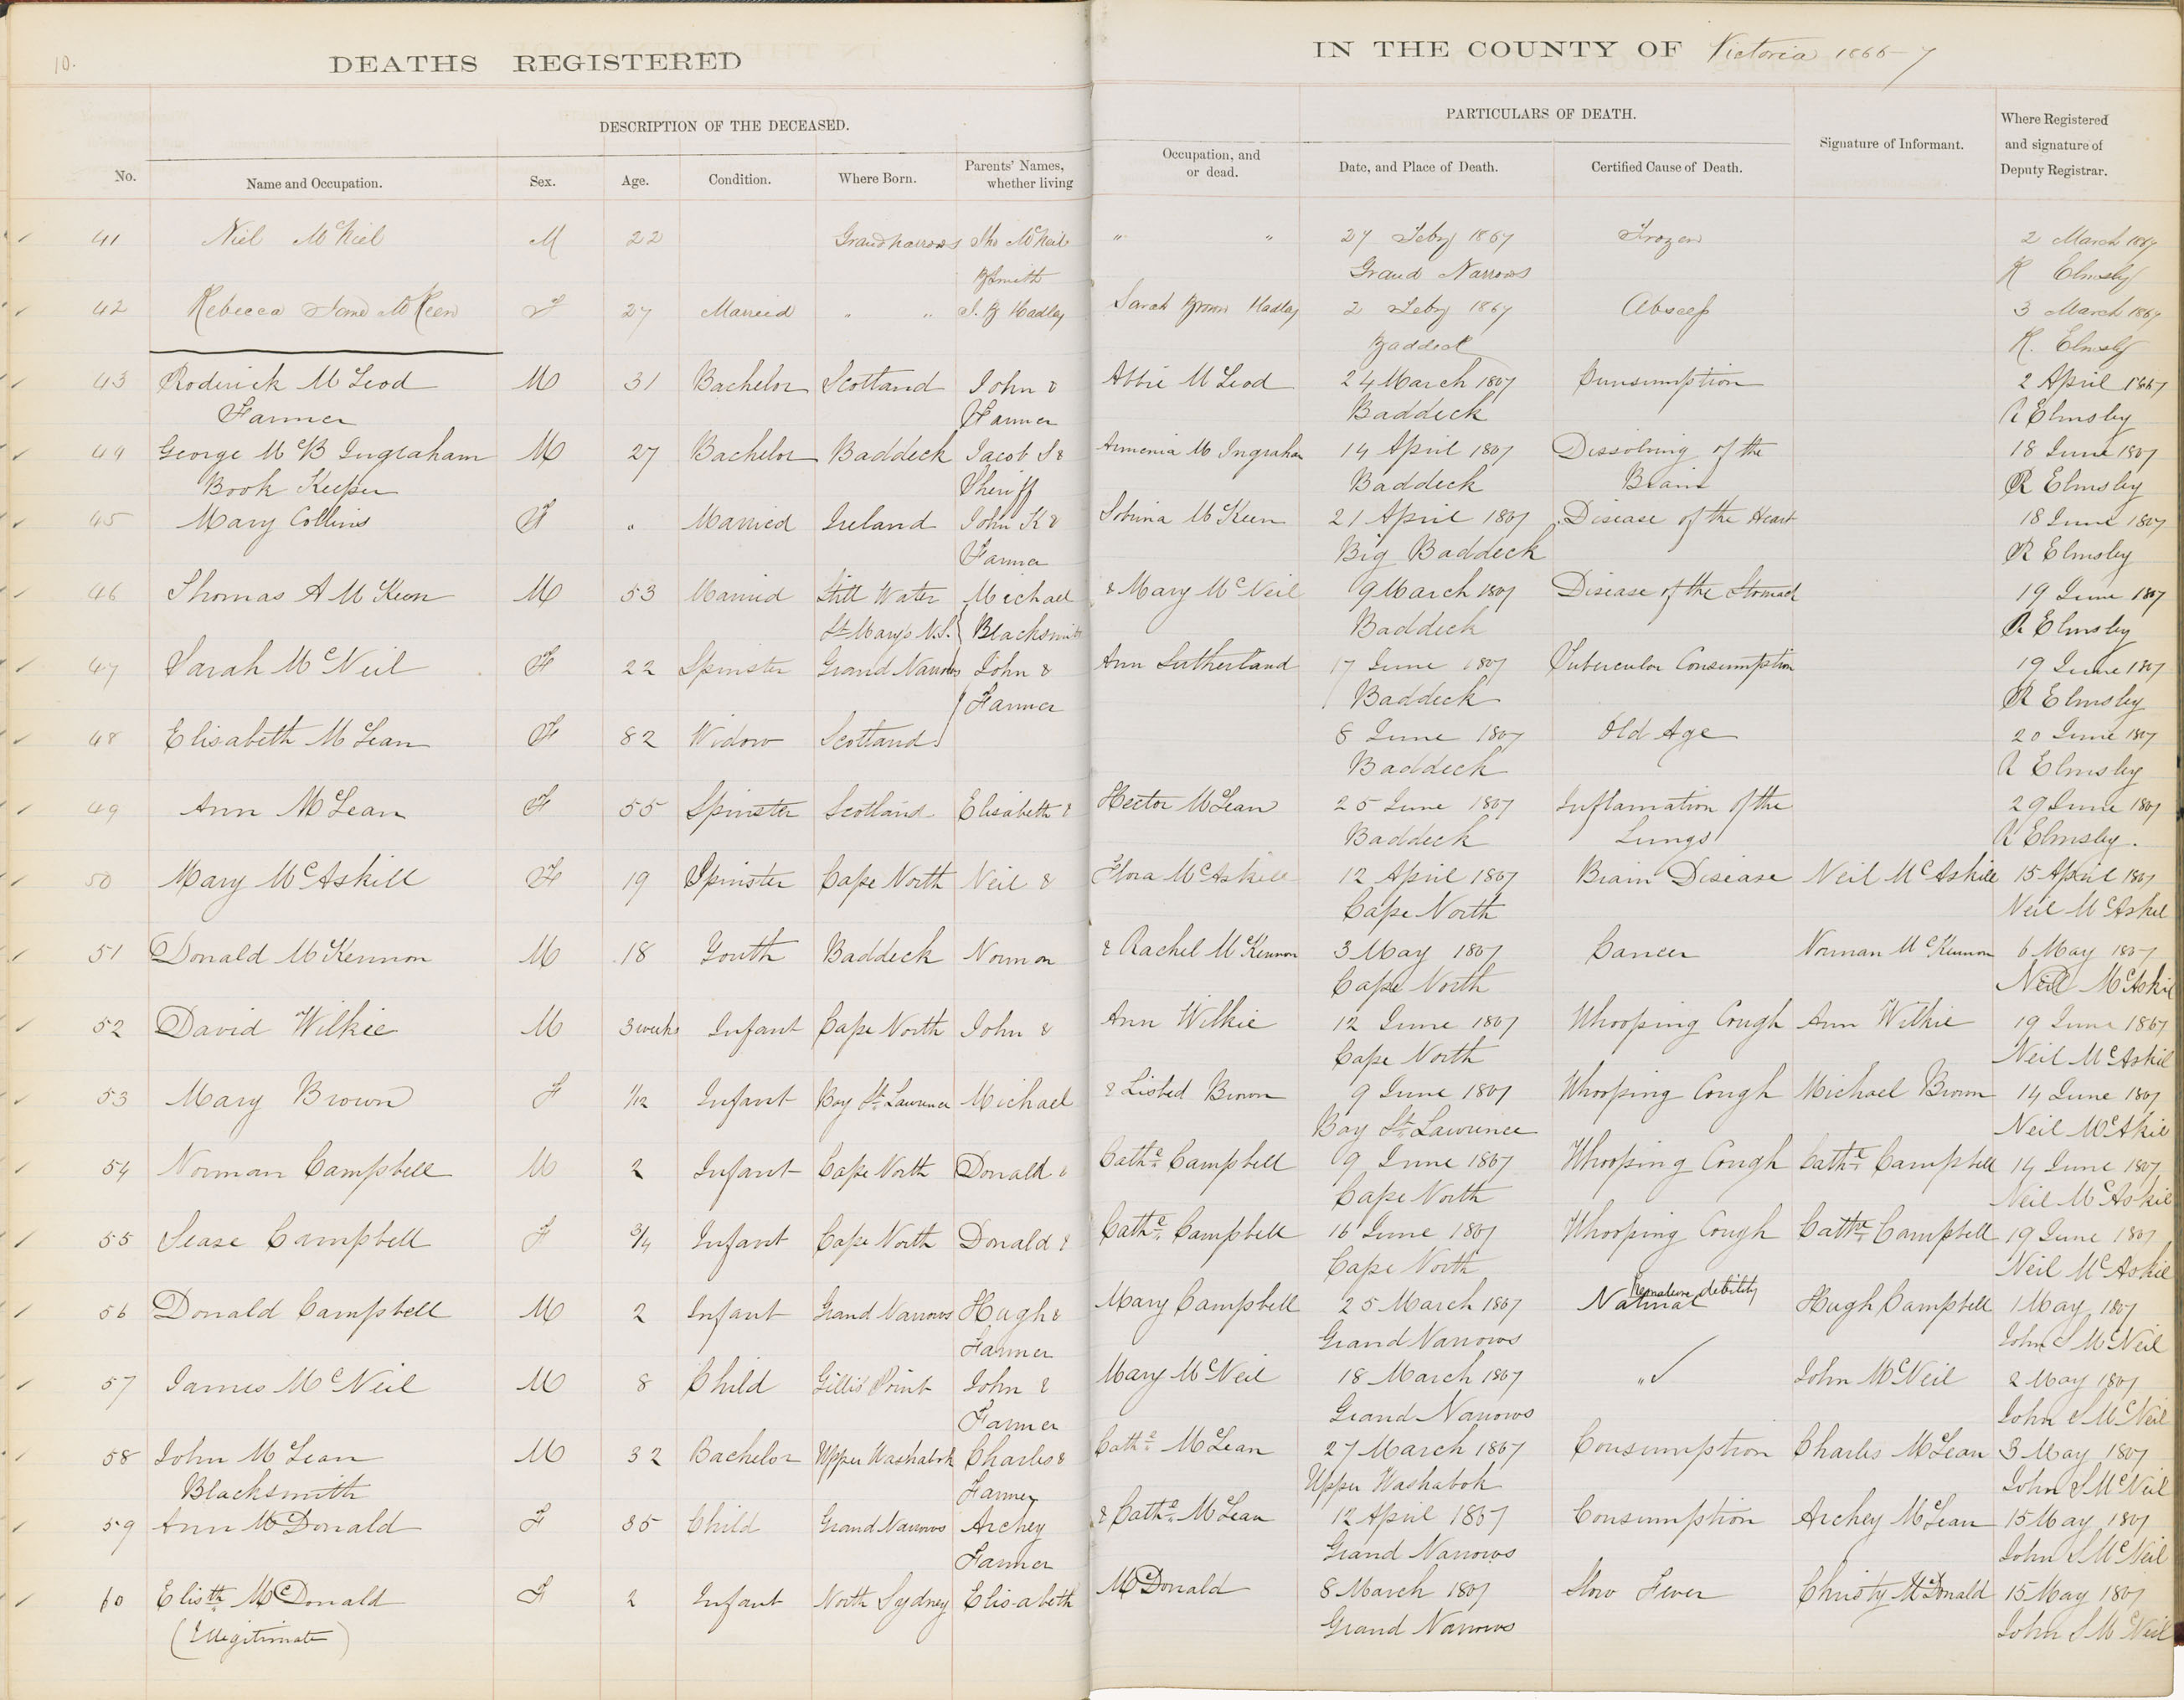 10.
DEATHS REGISTERED IN THE COUNTY OF Victoria 1866-7
DESCRIPTION OF THE DECEASED. PARTICULARS OF DEATH.
No. Name and Occupation. Sex. Age. Condition. Where Born. Parents' Names, whether living Occupation, and or dead. Date, and Place of Death. Certified Cause of Death. Signature of Informant. Where Registered and signature of Deputy Registrar.
41 Niel McNiel M 22 Grand Narrows Jho McNeil " " 27 Feby 1867 Frozen 2 March 1867
B Smith Grand Narrows R Elmsly
42 Rebecca Jane McKeen F 27 Married " " S. B Hadley Sarah Brown Hadley 2 Feby 1867 Abscess 3 March 1867
Baddeck R. Elmsly
43 Roderick McLeod M 31 Bachelor Scotland John & Abbie McLeod 24 March 1867 Cunsumption 2 April 1867
Farmer Farmer Baddeck R Elmsley
44 George McB Ingraham M 27 Bachelor Baddeck Jacob S & Armenia M Ingraham 14 April 1867 Dissolving of the 18 June 1867
Book Keeper Sheriff Baddeck Brain R Elmsley
45 Mary Collins F " Married Ireland John K & Sobrina McKeen 21 April 1867 Disease of the Heart 18 June 1867
Farmer Big Baddeck R Elmsley
46 Thomas A McKeen M 53 Married Still Water Michael & Mary McNeil 9 March 1867 Disease of the Stomach 19 June 1867
St Marys N.S. Blacksmith Baddeck R Elmsley
47 Sarah McNeil F 22 Spinster Grand Narrows John & Ann Sutherland 17 June 1867 Tubercular Consumption 19 June 1867
Farmer Baddeck R Elmsley
48 Elisabeth McLean F 82 Widow Scotland 8 June 1867 Old Age 20 June 1867
Baddeck R Elmsley
49 Ann McLean F 55 Spinster Scotland Elisabeth & Hector McLean 25 June 1867 Inflamation of the 29 June 1867
Baddeck Lungs R Elmsley.
50 Mary McAskill F 19 Spinster Cape North Neil & Flora McAskill 12 April 1867 Brain Disease Neil McAskill 15 April 1867
Cape North Neil McAskil
51 Donald McKennon M 18 Youth Baddeck Norman & Rachel McKennon 3 May 1867 Cancer Norman McKennon 6 May 1867
Cape North Neil McAskil
52 David Wilkie M 3 weeks Infant Cape North John & Ann Wilkie 12 June 1867 Whooping Cough Ann Wilkie 19 June 1867
Cape North Neil McAskil
53 Mary Brown F 1/12 Infant Bay St. Lawrence Michael & Lisbed Brown 9 June 1867 Whooping Cough Michael Brown 14 June 1867
Bay St. Lawrence Neil McAkil
54 Norman Campbell M 2 Infant Cape North Donald & Cathe. Campbell 9 June 1867 Whooping Cough Cathe. Campbell 14 June 1867
Cape North Neil McAskil
55 Sease Campbell F 3/4 Infant Cape North Donald & Cathe. Campbell 16 June 1867 Whooping Cough Cathe. Campbell 19 June 1867
Cape North Neil McAskil
Premature debility
56 Donald Campbell M 2 Infant Grand Narrows Hugh & Mary Campbell 25 March 1867 Natural Hugh Campbell 1 May 1867
Farmer Grand Narrows John S McNeil
57 James McNeil M 8 Child Gillis Point John & Mary McNeil 18 March 1867 " John McNeil 2 May 1867
Farmer Grand Narrows John S McNeil
58 John McLean M 32 Bachelor Upper Washabok Charles & Cathe. McLean 27 March 1867 Consumption Charles McLean 3 May 1867
Blacksmith Farmer Upper Washabok John S McNeil
59 Ann McDonald F 35 Child Grand Narrows Archey & Cathe. McLean 12 April 1867 Consumption Archey McLean 15 May 1867
Farmer Grand Narrows John S McNeil
60 Elisth. McDonald F 2 Infant North Sydney Elisabeth McDonald 8 March 1867 Slow Fever Christy McDonald 15 May 1867
(Illegitimate) Grand Narrows John S McNeil